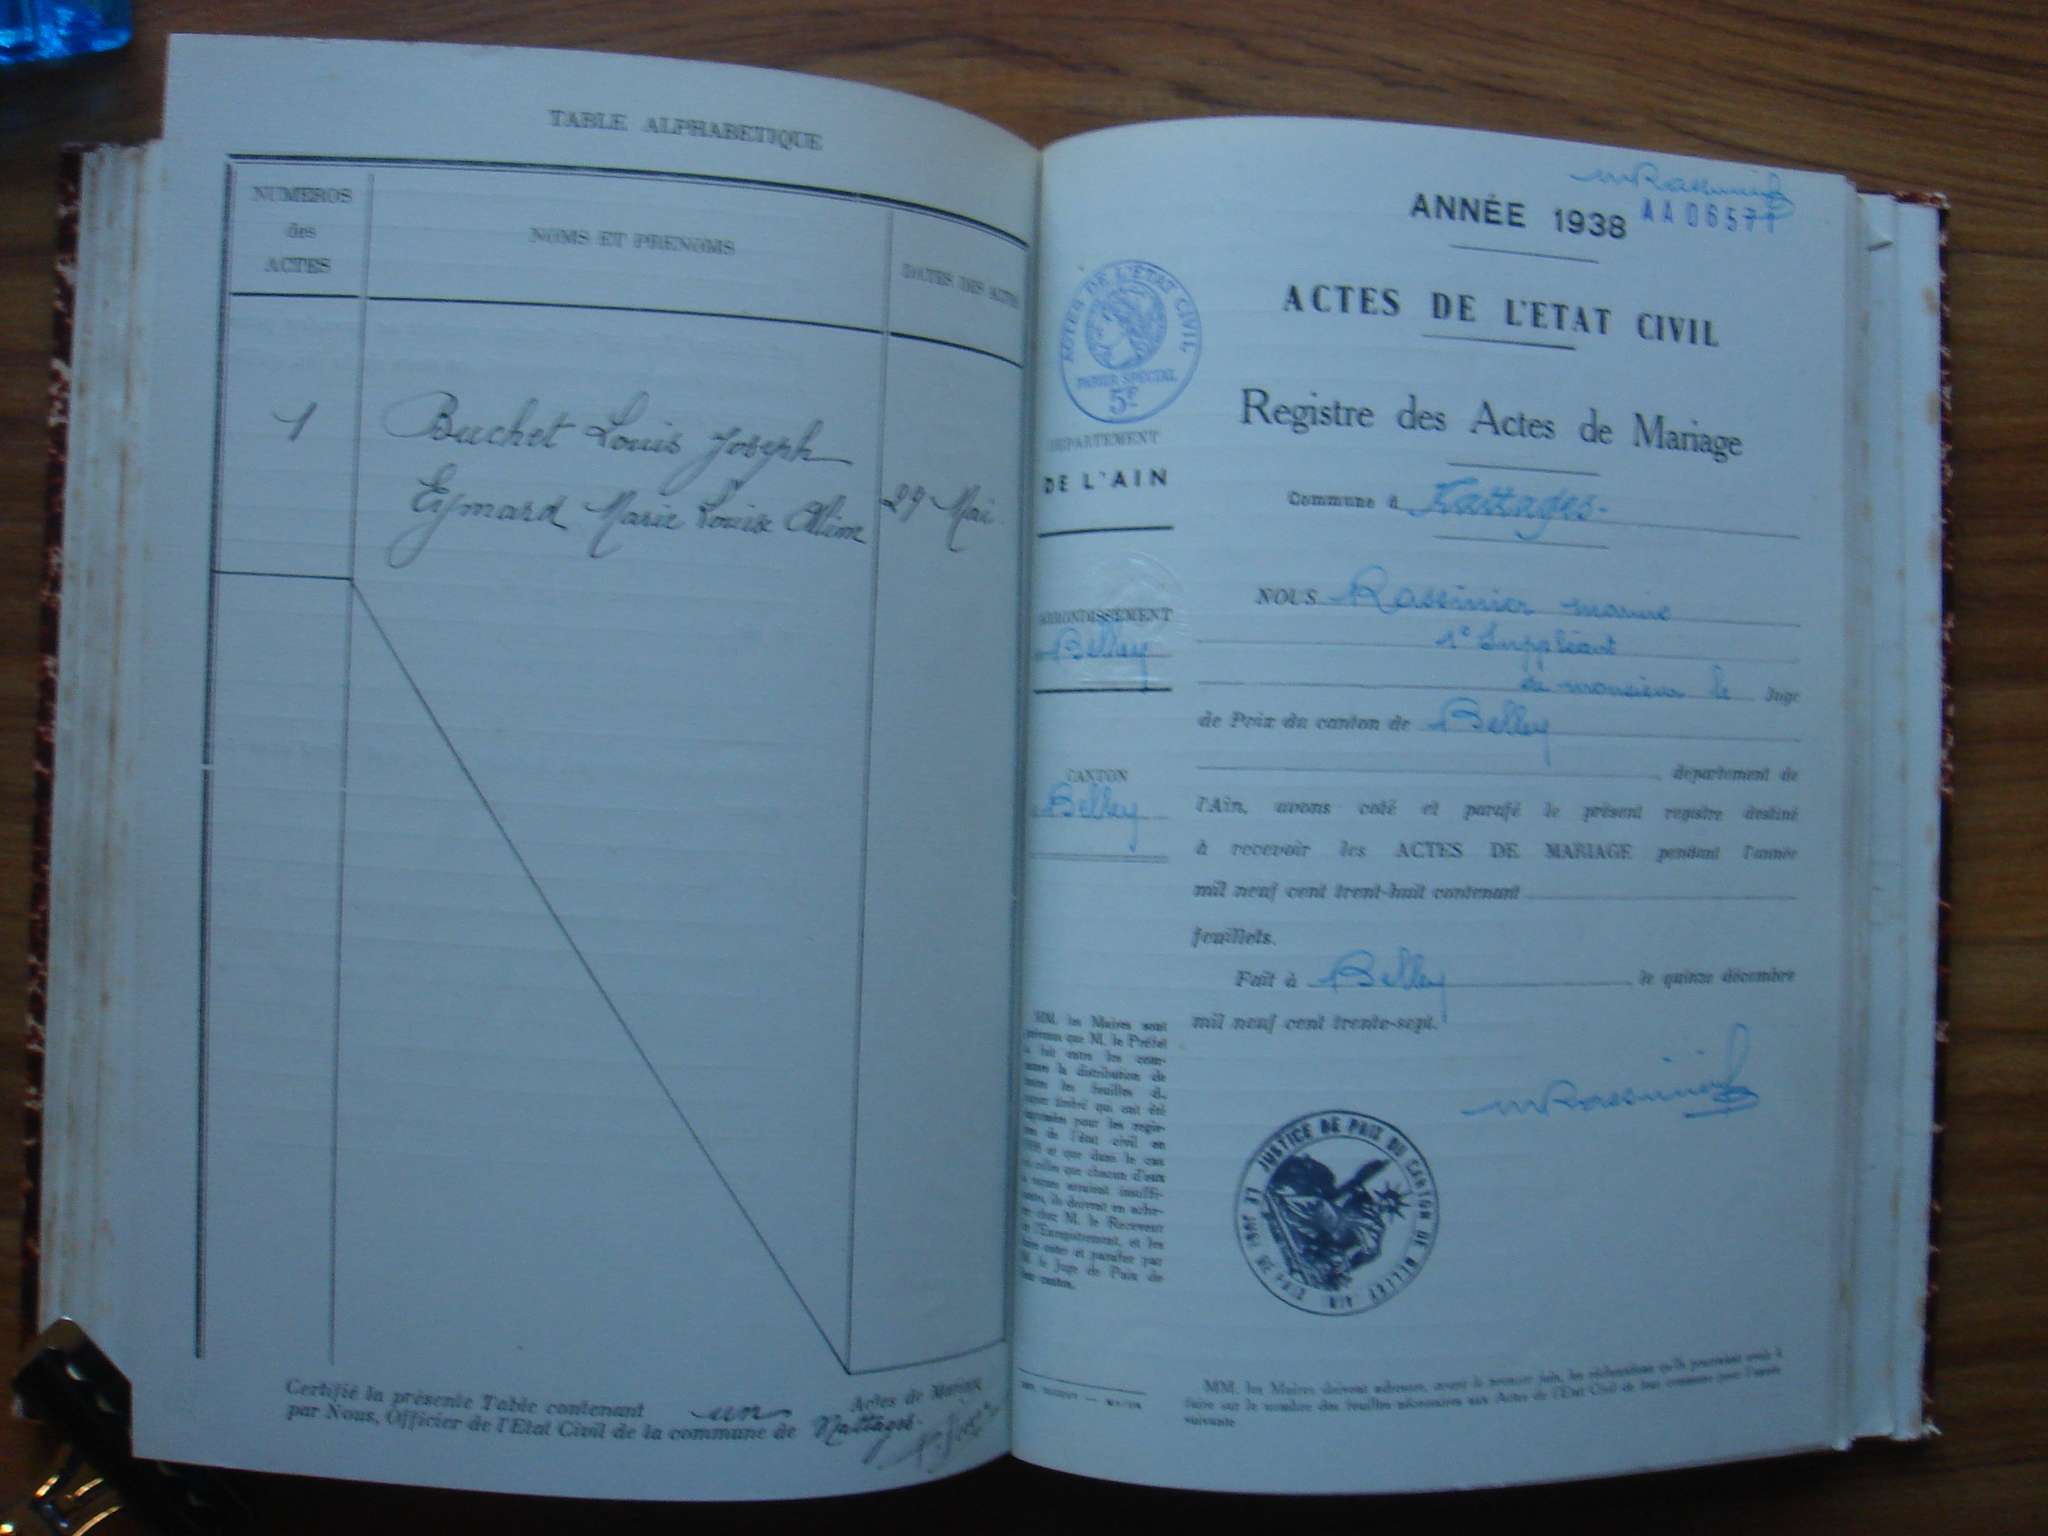 TABLE ALPHABETIQUE
NUMEROS
des
ACTES
NOMS ET PRENOMS
DATES DES ACTES
1
Buchet Louis Joseph
Eymard Marie Louise
29 Mai
Certifié la présente Table contenant un Actes de Mariage
par Nous, Officier de l'Etat Civil de la commune de Nattages.
AA 06571
ANNÉE 1938
ACTES DE L'ETAT CIVIL
Registre des Actes de Mariage
PAPIER SPECIAL
DEPARTEMENT
DE L'AIN
Commune d Nattages
ARRONDISSEMENT
Belley
CANTON
Belley
NOUS Rassinier
1e Suppléant
de monsieur le Juge
de Paix du canton de Belley
, département de
l'Ain, avons coté et parafé le présent registre destiné
à recevoir les ACTES DE MARIAGE pendant l'année
mil neuf cent trent-huit contenant
feuillets.
Fait à Belley le quinze décembre
mil neuf cent trente-sept.
MM. les Maires sont
prévenus que M. le Préfet
a fait entre les com-
munes la distribution de
toutes les feuilles de
papier timbré qui ont été
imprimées pour les regis-
tres de l'état civil en
et que dans le cas
où celles que chacun d'eux
a reçues seraient insuffi-
santes, ils doivent en ache-
ter chez M. le Receveur
de l'Enregistrement, et les
faire coter et parafer par
M. le Juge de Paix de
leur canton.
LE JUGE DE PAIX JUSTICE DE PAIX DU CANTON DE BELLEY AIN
MM. les Maires doivent adresser, avant le premier juin, les réclamations qu'ils pourraient avoir à
faire sur le nombre des feuilles nécessaires aux Actes de l'Etat Civil de leur commune pour l'année
suivante